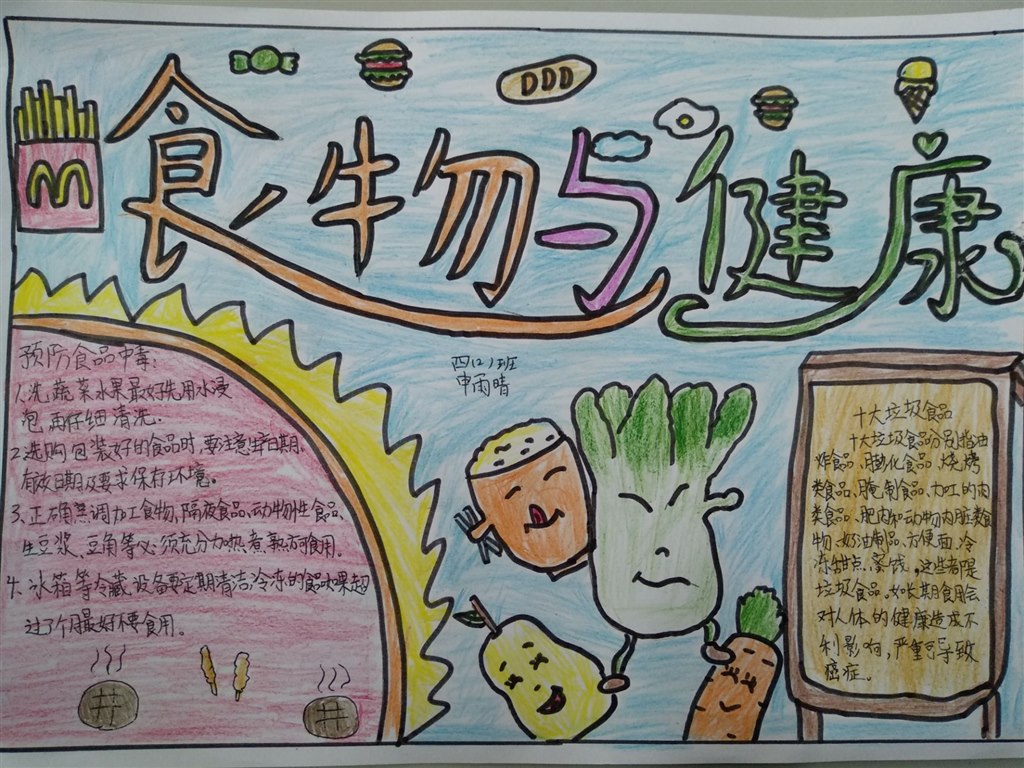 食物与健康
四(2)班
申雨晴
预防食品中毒:
1.洗蔬菜水果最好先用水浸
泡,再仔细清洗.
2.选购包装好的食品时,要注意生产日期,
有效日期及要求保存环境。
3、正确烹调加工食物,隔夜食品、动物性食品、
生豆浆、豆角等必须充分加热煮熟方可食用。
4、冰箱等冷藏设备要定期清洁,冷冻的食品如果超
过3个月最好不要食用。
十大垃圾食品
十大垃圾食品分别指油
炸食品、膨化食品、烧烤
类食品、腌制食品、加工的肉
类食品、肥肉和动物内脏类食
物、奶油制品、方便面、冷
冻甜点、蜜饯,这些都是
垃圾食品。如长期食用会
对人体的健康造成不
利影响,严重可导致
癌症。